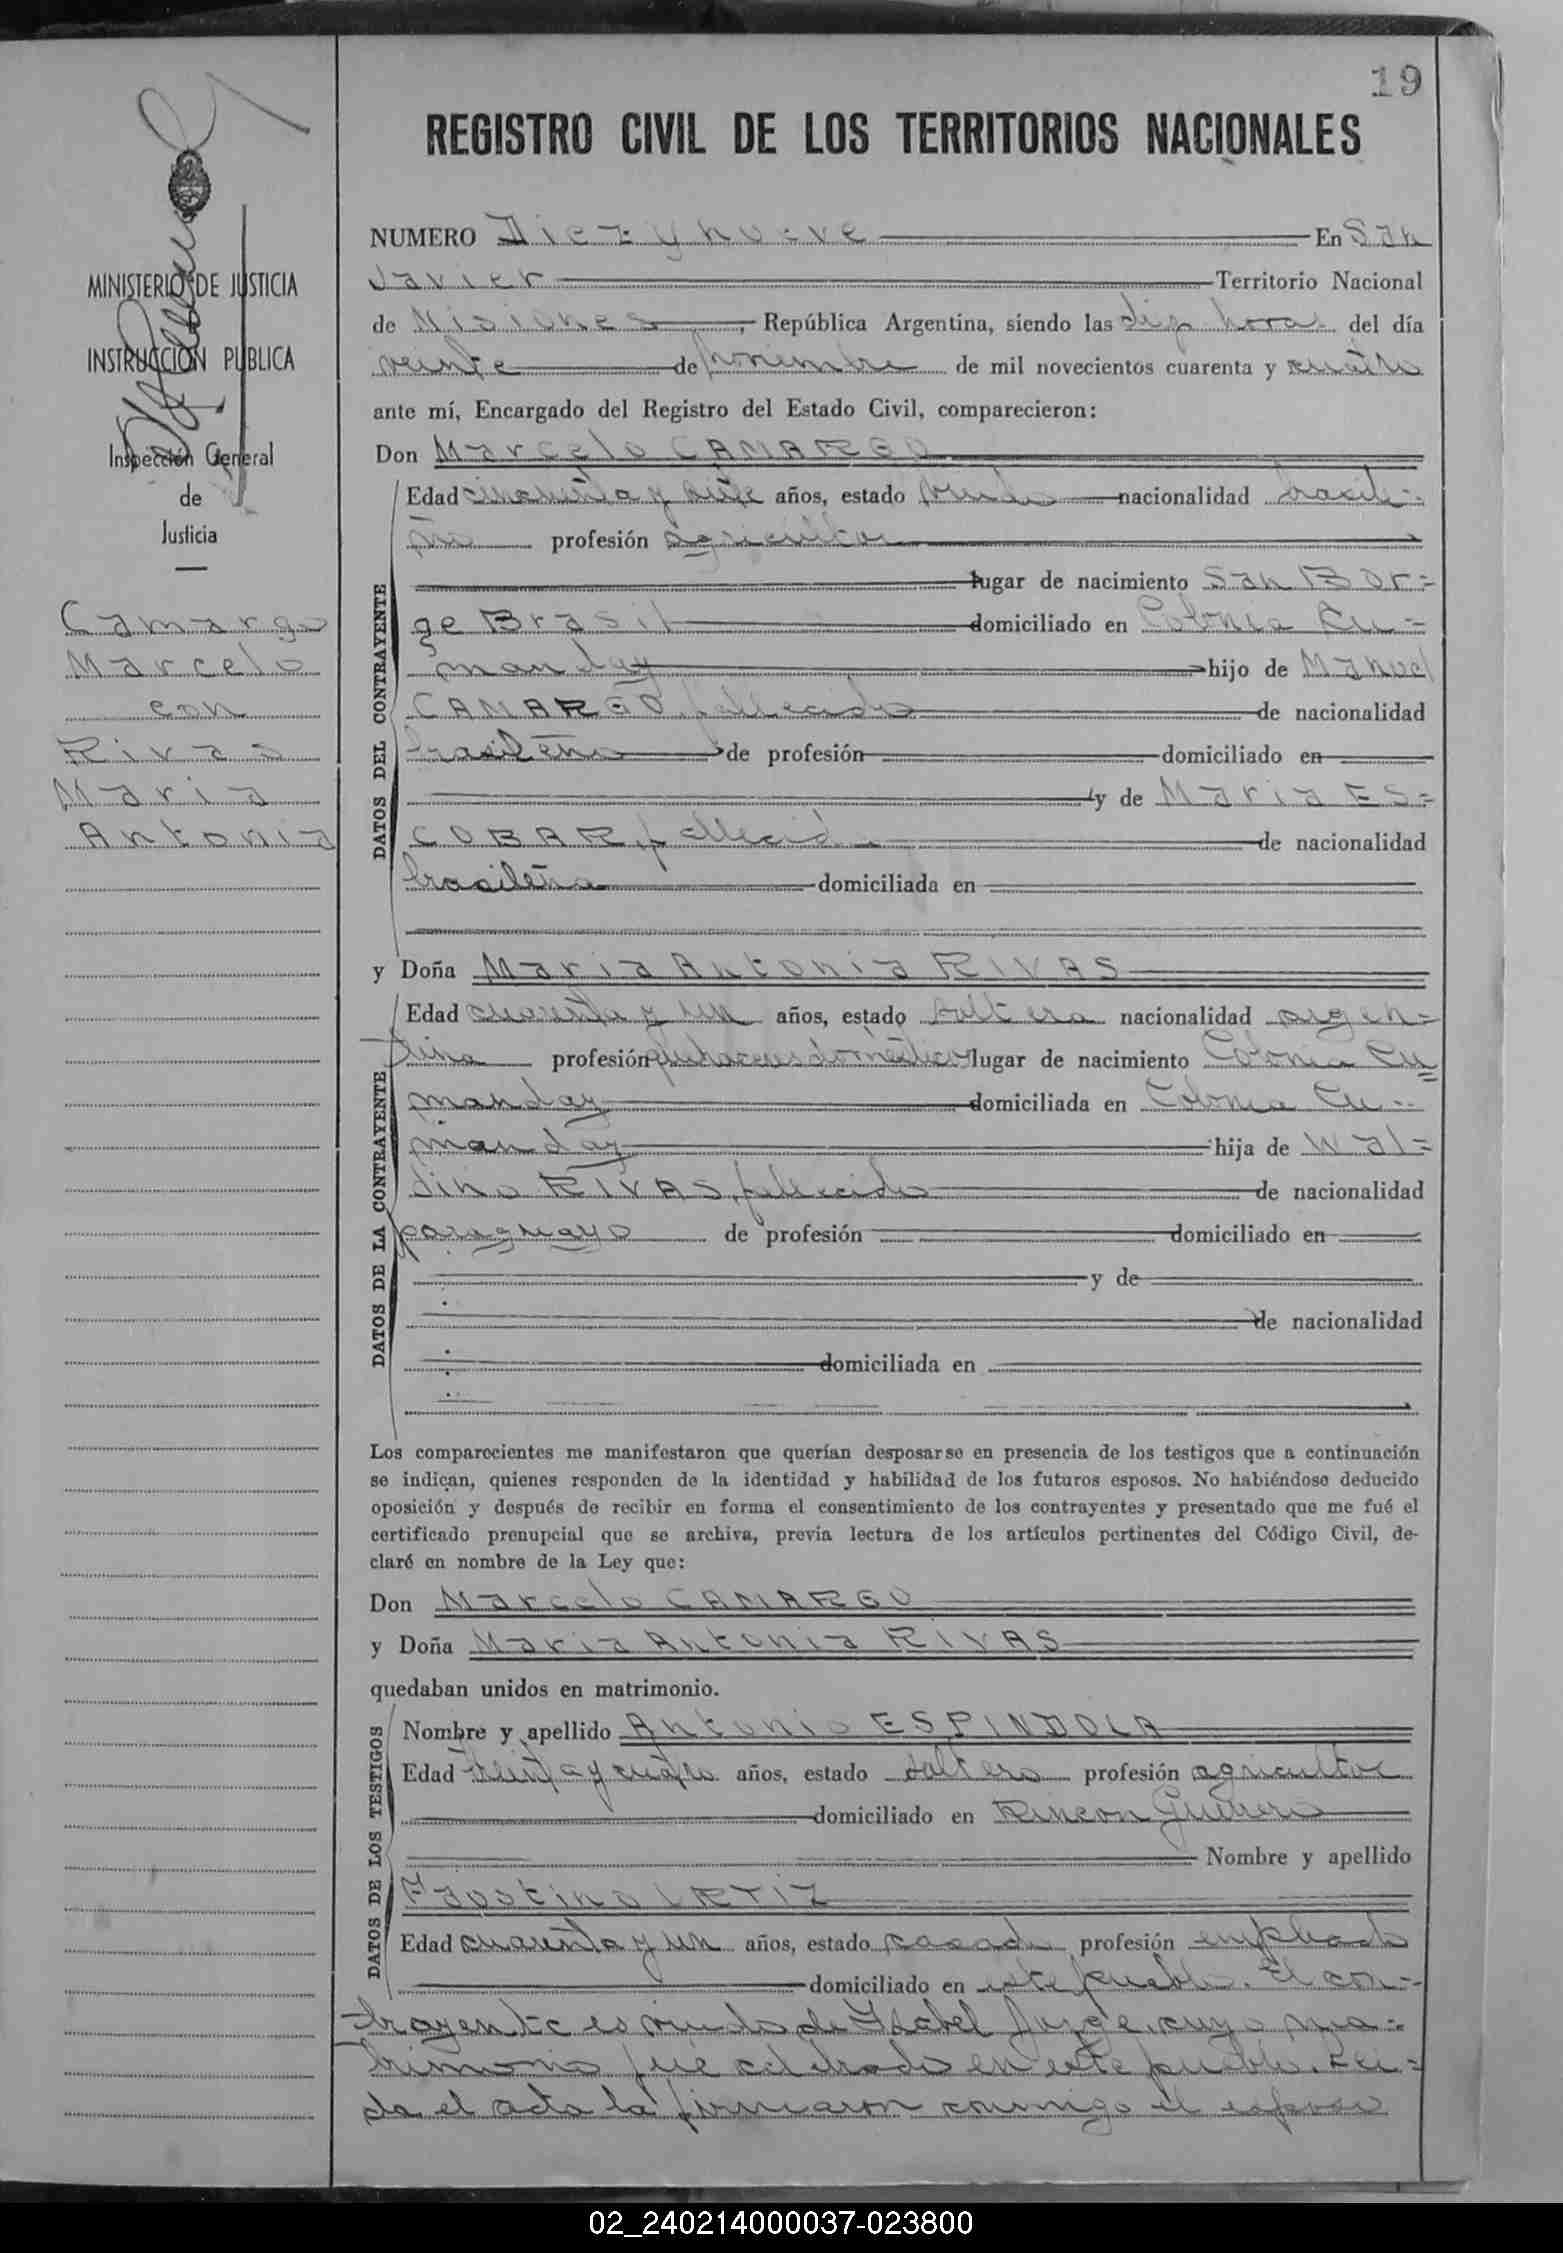 19
REGISTRO CIVIL DE LOS TERRITORIOS NACIONALES
MINISTERIO DE JUSTICIA
INSTRUCCIÓN PUBLICA
Inspección General
de
Justicia
Camargo
Marcelo
con
Rivas
Maria
Antonia
NUMERO Diez y nueve En San
Javier Territorio Nacional
de Misiones, República Argentina, siendo las diez horas del día
veinte de noviembre de mil novecientos cuarenta y cuatro
ante mí, Encargado del Registro del Estado Civil, comparecieron:
Don Marcelo CAMARGO
DATOS DEL CONTRAYENTE
Edad cincuenta y siete años, estado viudo nacionalidad brasile=
ño profesión agricultor
lugar de nacimiento San Bor=
ge Brasil domiciliado en Colonia Cu=
manday hijo de Manuel
CAMARGO, fallecido de nacionalidad
brasileño de profesión domiciliado en
y de Maria ES=
COBAR, fallecida de nacionalidad
brasileña domiciliada en
y Doña Maria Antonia RIVAS
DATOS DE LA CONTRAYENTE
Edad cuarenta y un años, estado soltera nacionalidad argen=
tina profesión quehaceres domésticos lugar de nacimiento Colonia Cu=
manday domiciliada en Colonia Cu=
manday hija de Wal=
dino RIVAS, fallecido de nacionalidad
paraguayo de profesión domiciliado en
y de
de nacionalidad
domiciliada en
Los comparecientes me manifestaron que querían desposarse en presencia de los testigos que a continuación
se indican, quienes responden de la identidad y habilidad de los futuros esposos. No habiéndose deducido
oposición y después de recibir en forma el consentimiento de los contrayentes y presentado que me fué el
certificado prenupcial que se archiva, previa lectura de los artículos pertinentes del Código Civil, de-
claré en nombre de la Ley que:
Don Marcelo CAMARGO
y Doña Maria Antonia RIVAS
quedaban unidos en matrimonio.
DATOS DE LOS TESTIGOS
Nombre y apellido Antonio ESPINDOLA
Edad treinta y cuatro años, estado soltero profesión agricultor
domiciliado en Rincon Guerrero
Nombre y apellido
Faostino
Edad cuarenta y un años, estado casado profesión empleado
domiciliado en este pueblo. El con=
trayente es viudo de Isabel Jorge, cuyo ma=
trimonio fué celebrado en este pueblo. Lei=
da el acta la firmaron conmigo el esposo
02_240214000037-023800